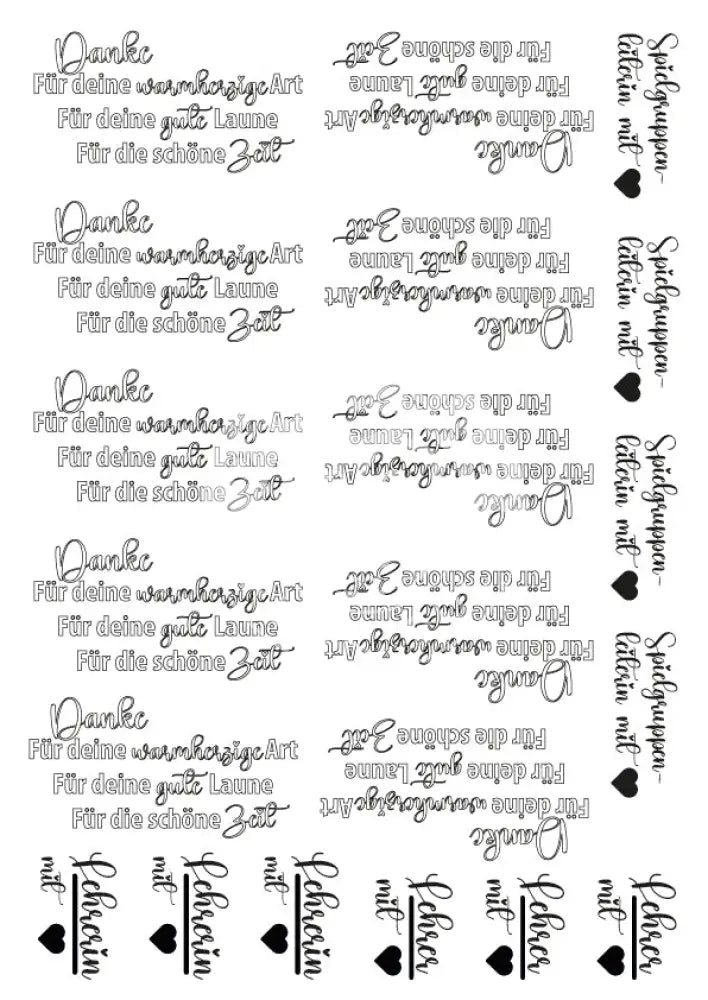 Danke
Für deine warmherzige Art
Für deine gute Laune
Für die schöne Zeit
Danke
Für deine warmherzige Art
Für deine gute Laune
Für die schöne Zeit
Danke
Für deine warmherzige Art
Für deine gute Laune
Für die schöne Zeit
Danke
Für deine warmherzige Art
Für deine gute Laune
Für die schöne Zeit
Danke
Für deine warmherzige Art
Für deine gute Laune
Für die schöne Zeit
Danke
Für deine warmherzige Art
Für deine gute Laune
Für die schöne Zeit
Danke
Für deine warmherzige Art
Für deine gute Laune
Für die schöne Zeit
Danke
Für deine warmherzige Art
Für deine gute Laune
Für die schöne Zeit
Danke
Für deine warmherzige Art
Für deine gute Laune
Für die schöne Zeit
Danke
Für deine warmherzige Art
Für deine gute Laune
Für die schöne Zeit
Spielgruppen-
leiterin mit ♥
Spielgruppen-
leiterin mit ♥
Spielgruppen-
leiterin mit ♥
Spielgruppen-
leiterin mit ♥
Lehrerin
mit ♥
Lehrerin
mit ♥
Lehrerin
mit ♥
Lehrer
mit ♥
Lehrer
mit ♥
Lehrer
mit ♥